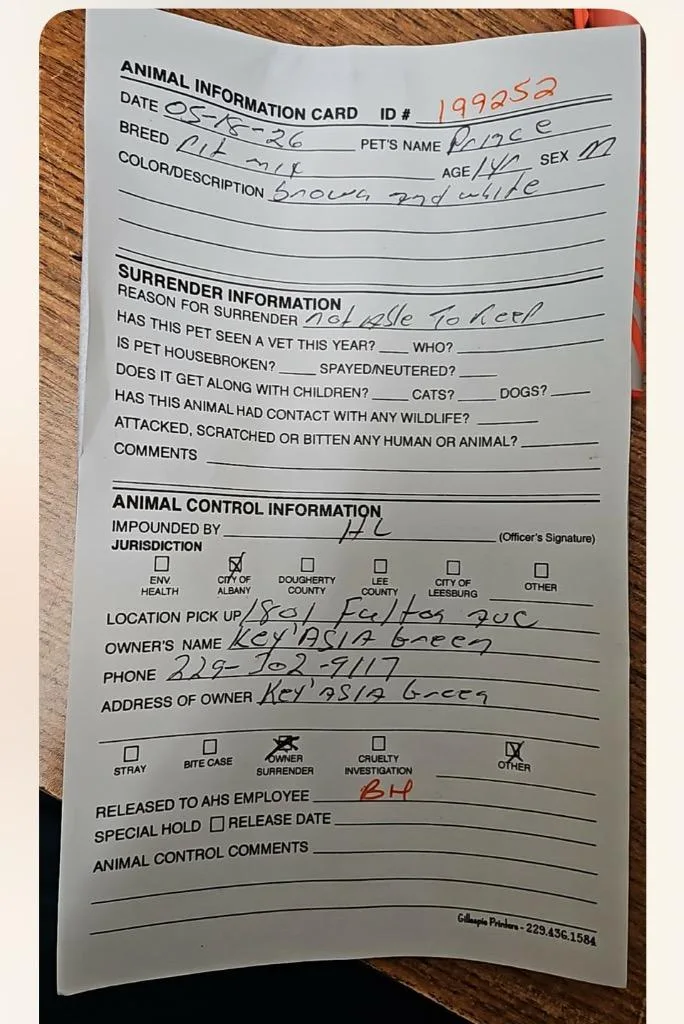 ANIMAL INFORMATION CARD ID # 199252
DATE 05-18-26 PET'S NAME Prince
BREED Pit mix AGE 1yr SEX M
COLOR/DESCRIPTION brown and white
SURRENDER INFORMATION
REASON FOR SURRENDER not able To Keep
HAS THIS PET SEEN A VET THIS YEAR? WHO?
IS PET HOUSEBROKEN? SPAYED/NEUTERED?
DOES IT GET ALONG WITH CHILDREN? CATS? DOGS?
HAS THIS ANIMAL HAD CONTACT WITH ANY WILDLIFE?
ATTACKED, SCRATCHED OR BITTEN ANY HUMAN OR ANIMAL?
COMMENTS
ANIMAL CONTROL INFORMATION
IMPOUNDED BY HL (Officer's Signature)
JURISDICTION
ENV. HEALTH CITY OF ALBANY DOUGHERTY COUNTY LEE COUNTY CITY OF LEESBURG OTHER
LOCATION PICK UP 1801 Fulton ave
OWNER'S NAME Key'ASIA Green
PHONE 229-302-9117
ADDRESS OF OWNER Key'ASIA Green
STRAY BITE CASE OWNER SURRENDER CRUELTY INVESTIGATION OTHER
RELEASED TO AHS EMPLOYEE BH
SPECIAL HOLD RELEASE DATE
ANIMAL CONTROL COMMENTS
Gillespie Printers - 229.436.1584